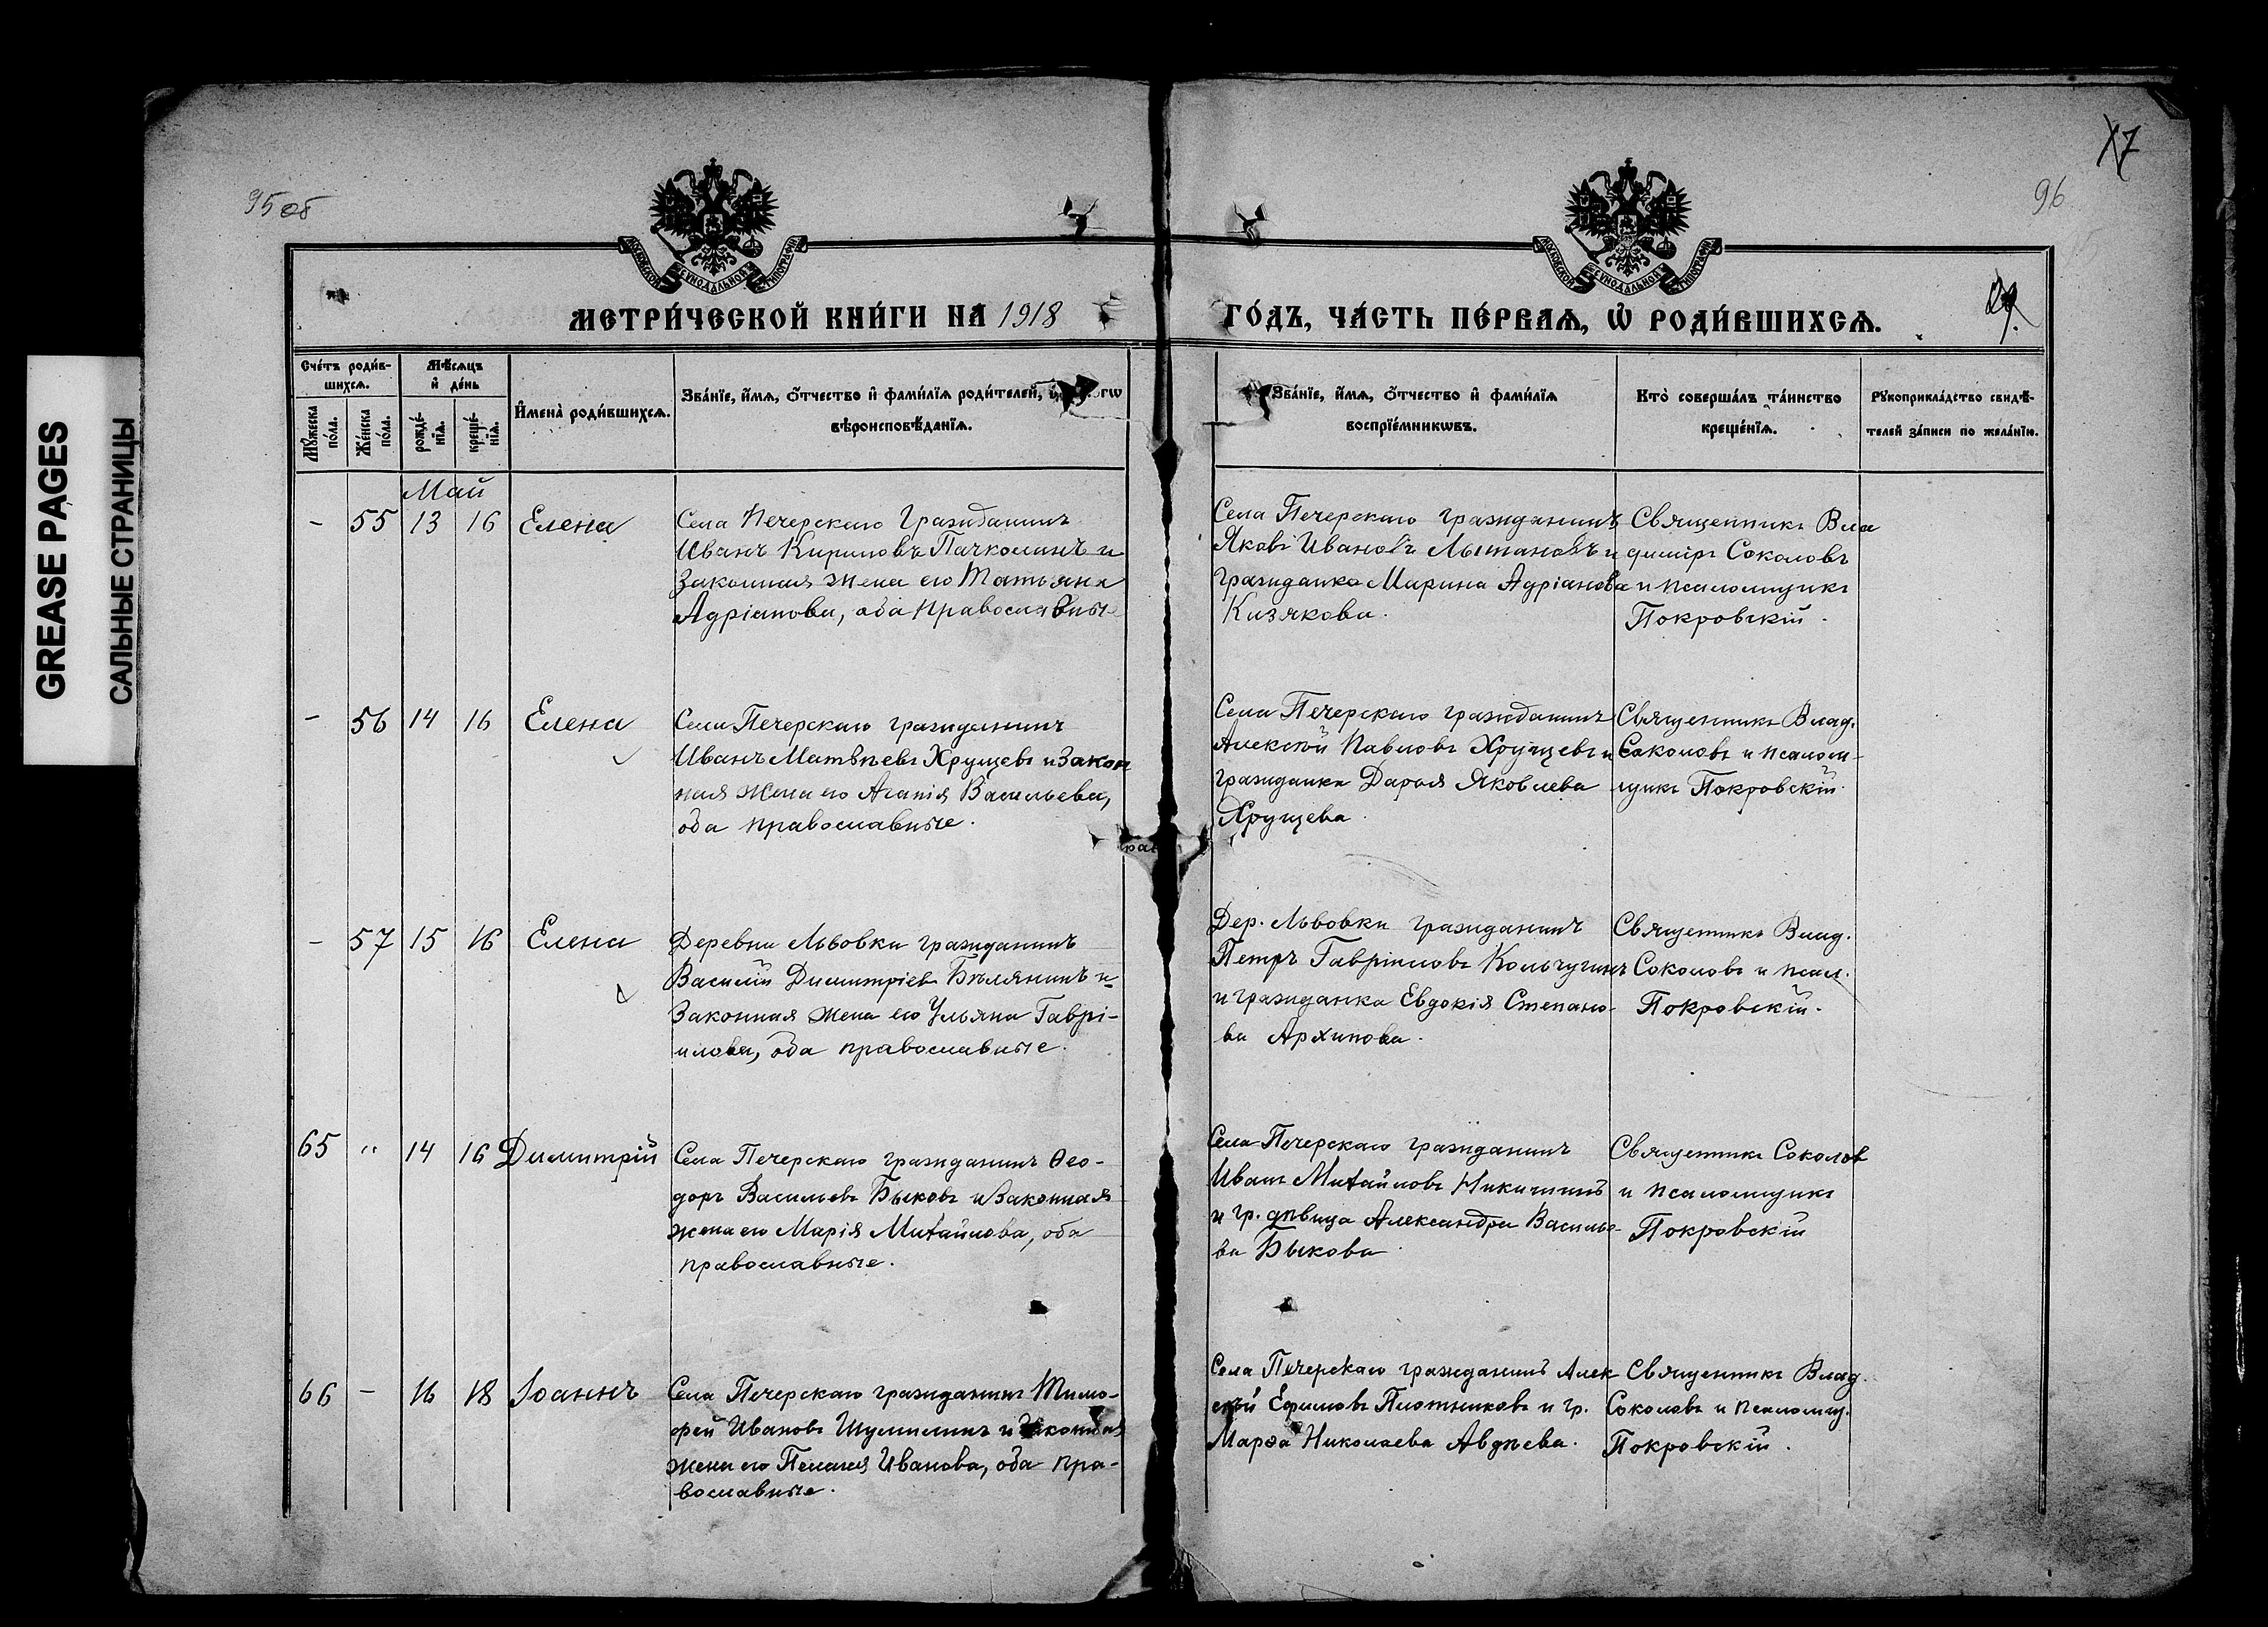 GREASE PAGES
САЛЬНЫЕ СТРАНИЦЫ
95 об
96
МЕТРИ́ЧЕСКОЙ КНИ́ГИ НА 1918
ГО́ДЪ, ЧА́СТЬ ПЕ́РВАѦ, Ѡ РОДИ́ВШИХСѦ.
Сче́тъ роди́в-
шихсѧ.
Мꙋжеска
по́ла.
Же́нска
по́ла.
Мѣ́сѧцъ
и҆ де́нь
рожде́-
нїѧ.
креще́-
нїѧ.
И҆мена̀ роди́вшихсѧ.
Зва́нїе, и҆́мѧ, ѻ҆́тчество и҆ фами́лїѧ роди́телей,
вѣроисповѣ́данїѧ.
Зва́нїе, и҆́мѧ, ѻ҆́тчество и҆ фами́лїѧ
воспрїе́мникѡвъ.
Кто̀ соверша́лъ та́инство
креще́нїѧ.
Рꙋкоприкла́дство свидѣ́-
телей за́писи по жела́нїю.
Май
- 55 13 16 Елена
Села Печерскаго Гражданинъ
Иванъ Кириловъ Пачколинъ и
Законная жена его Татьяна
Адріанова, оба православные
Села Печерскаго гражданинъ
Яковъ Ивановъ и
гражданка Марина Адріанова
Кизякова.
Священникъ Вла
димiръ Соколовъ
и псаломщикъ
Покровскій.
- 56 14 16 Елена
Села Печерскаго гражданинъ
Иванъ Матвѣевъ Хрущевъ и Закон
ная жена его Агапія Васильева,
оба православные.
Села Печерскаго гражданинъ
Алексѣй Павловъ Хрущевъ и
гражданка Дарья Яковлева
Хрущева.
Священникъ Влад.
Соколовъ и псалом-
щикъ Покровскій.
- 57 15 16 Елена
Деревни Львовки гражданинъ
Василій Димитріевъ Бѣлянинъ и
Законная жена его Ульяна Гаврі-
илова, оба православные.
Дер. Львовки гражданинъ
Петръ Гавріиловъ Кольчугинъ
и гражданка Евдокія Степано-
ва Архипова.
Священникъ Влад.
Соколовъ и псал.
Покровскій.
65 " 14 16 Димитрій
Села Печерскаго гражданинъ Ѳео-
доръ Васильевъ Быковъ и Законная
жена его Марія Михайлова, оба
православные.
Села Печерскаго гражданинъ
Иванъ Михайловъ Никитинъ
и гр. дѣвица Александра Василье-
ва Быкова.
Священникъ Соколов
и псаломщикъ
Покровскій
66 - 16 18 Іоаннъ
Села Печерскаго гражданинъ Тимо-
фей Ивановъ Шумилинъ и Законная
жена его Пелагея Иванова, оба пра-
вославные.
Села Печерскаго гражданинъ Алек
сѣй Ефимовъ Плотниковъ и гр.
Марѳа Николаева Авдѣева.
Священникъ Влад.
Соколовъ и псаломщ.
Покровскій.